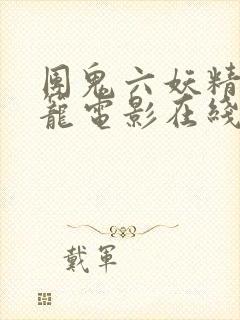 團鬼六妖精
籠電影在綫
戴軍